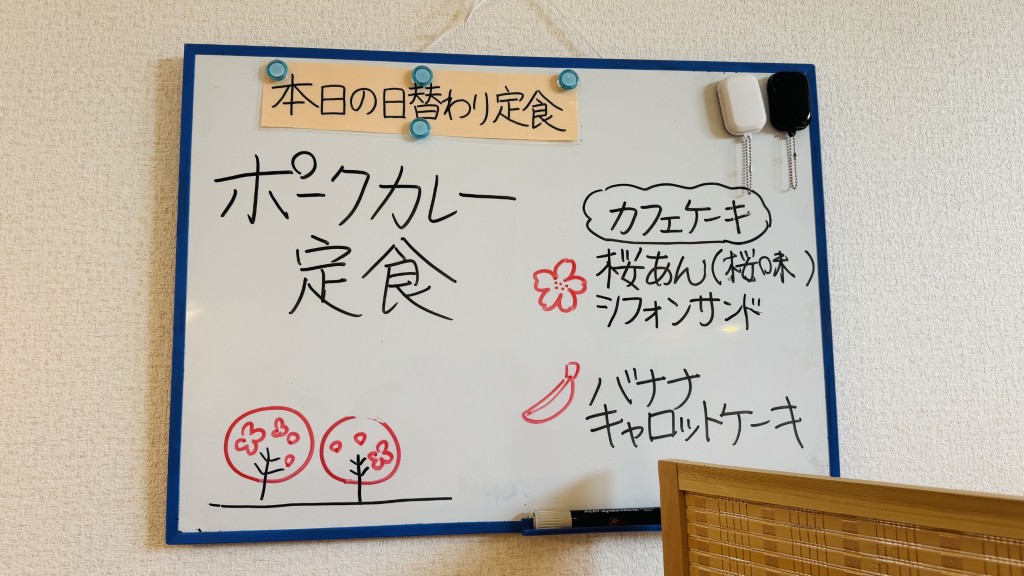 本日の日替わり定食
ポークカレー
定食
カフェケーキ
桜あん(桜味)
シフォンサンド
バナナ
キャロットケーキ